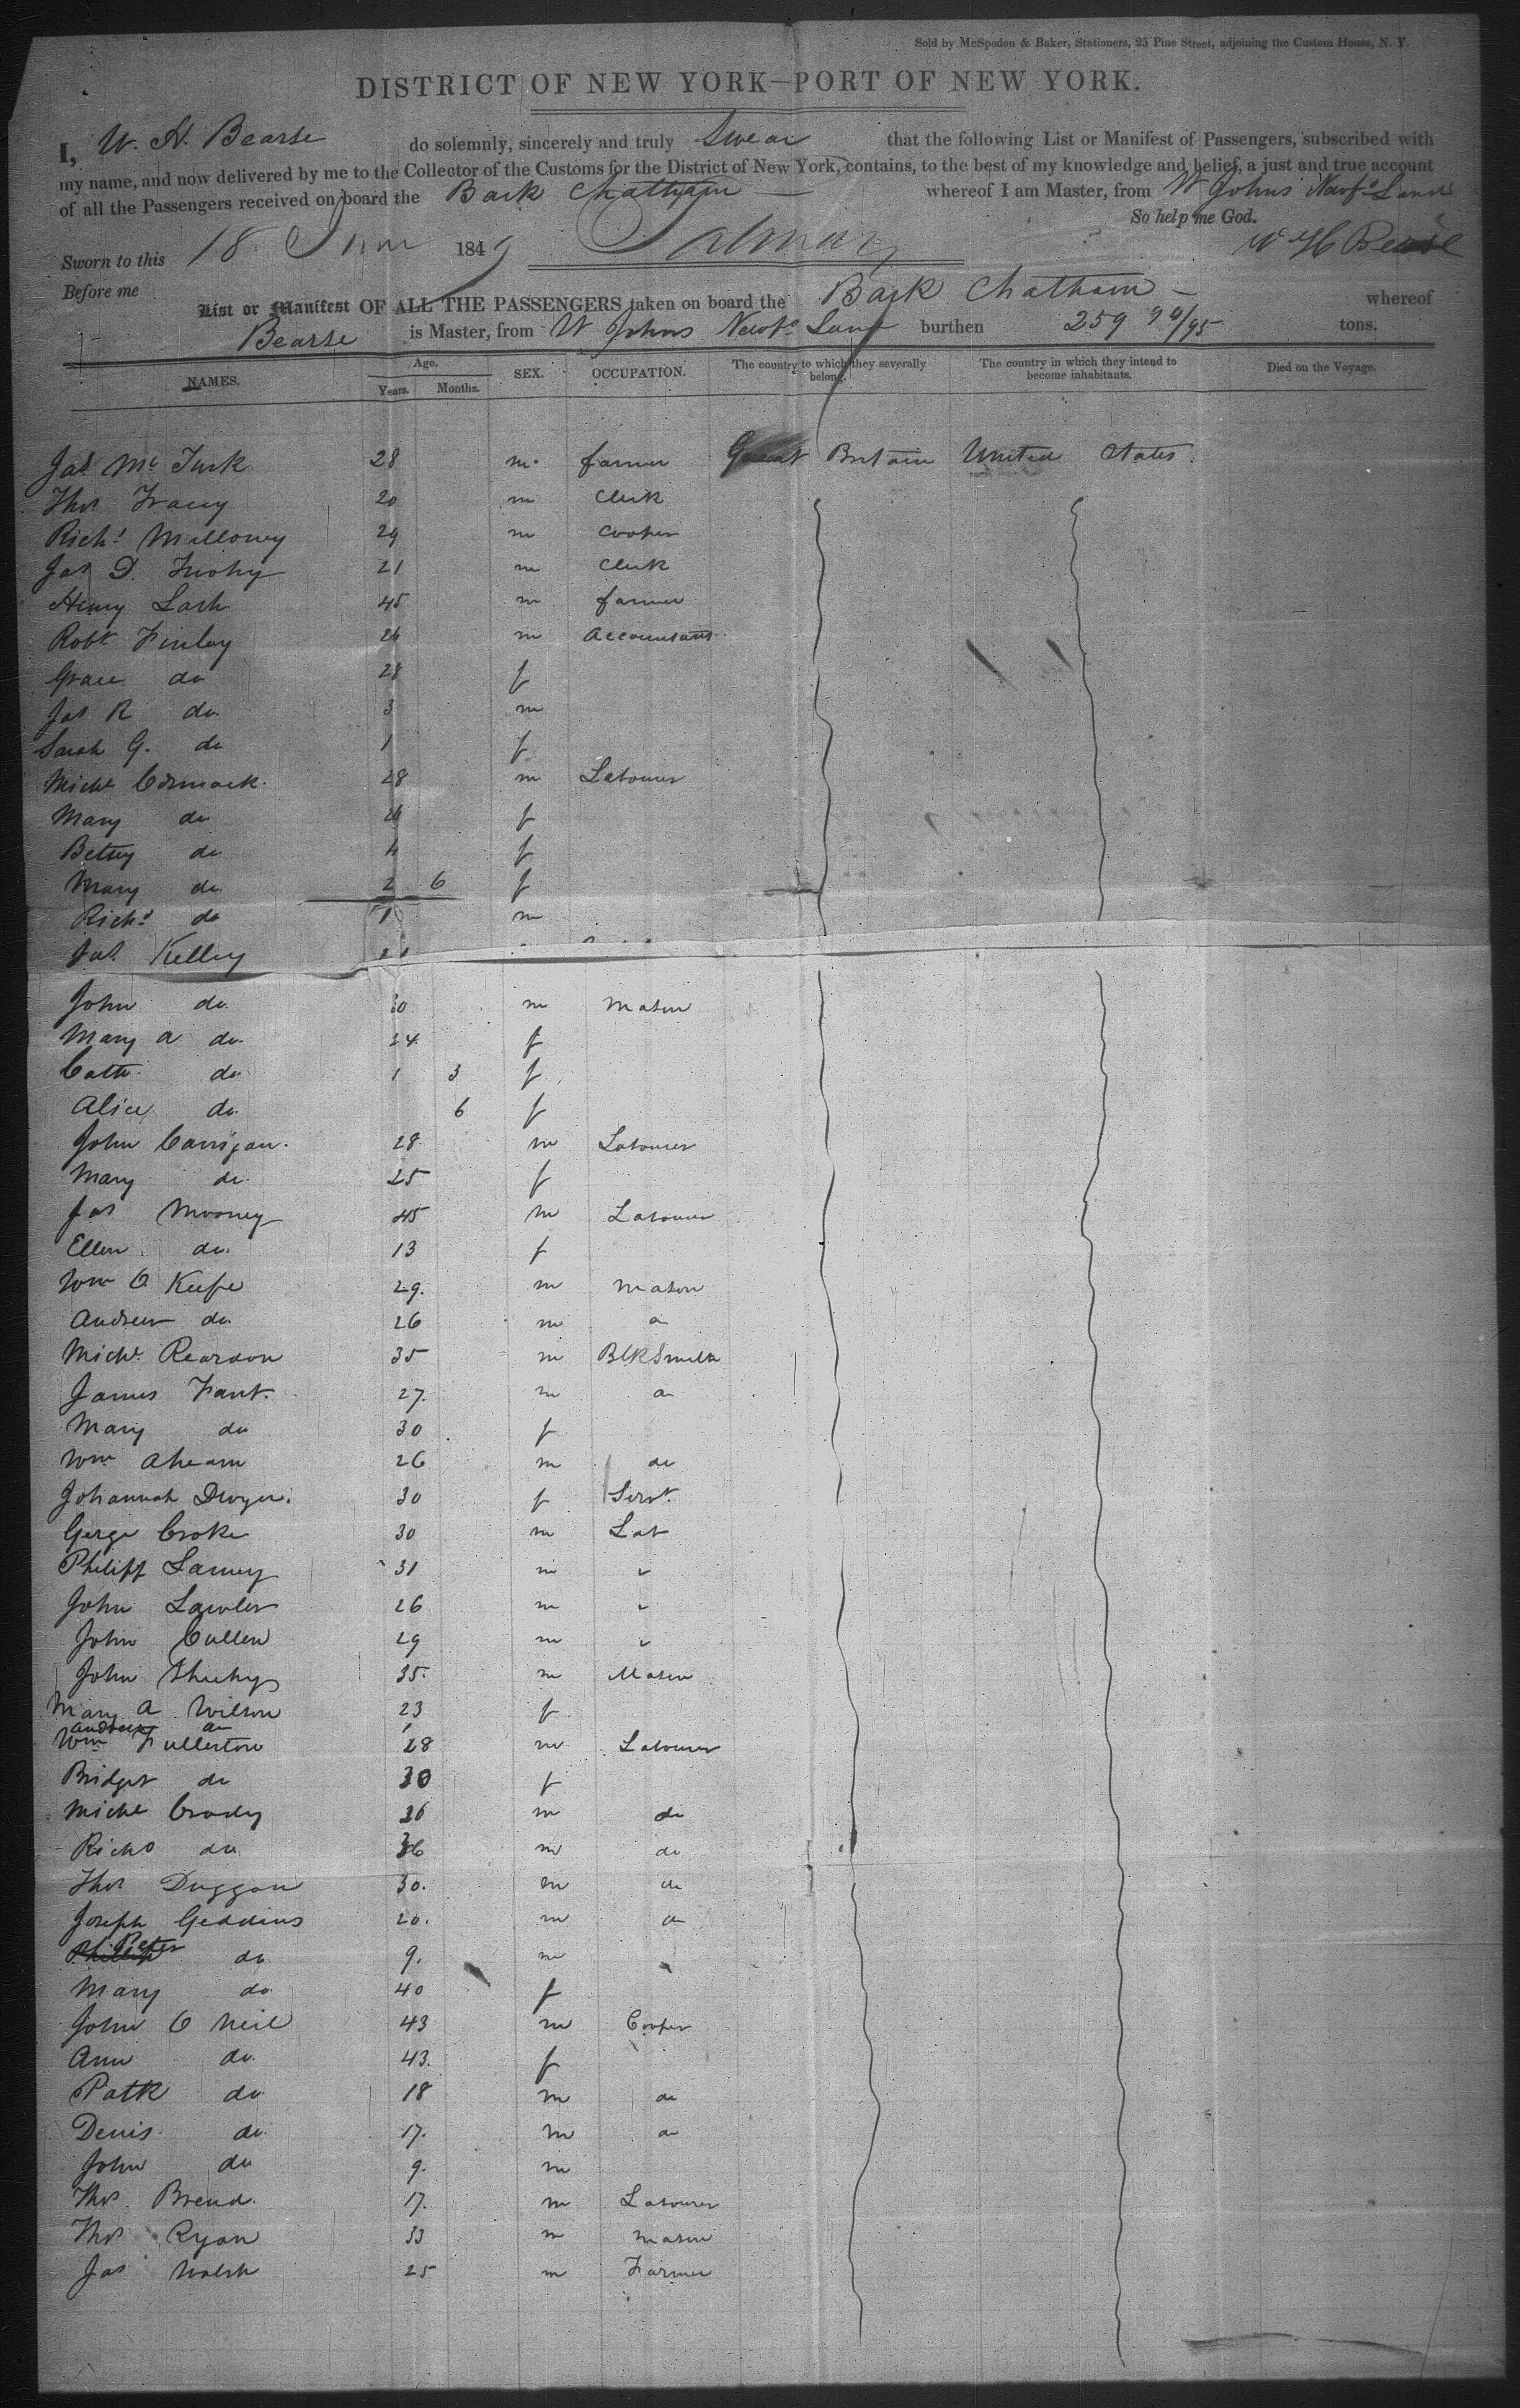 Sold by McSpedon & Baker, Stationers, 25 Pine Street, adjoining the Custom House, N. Y.
DISTRICT OF NEW YORK—PORT OF NEW YORK.
I, W. H. Bearse do solemnly, sincerely and truly Swear that the following List or Manifest of Passengers, subscribed with
my name, and now delivered by me to the Collector of the Customs for the District of New York, contains, to the best of my knowledge and belief, a just and true account
of all the Passengers received on board the Bark Chatham whereof I am Master, from St Johns Newfo Land
So help me God.
Sworn to this 18 June 1849 W H Bearse
Before me
List or Manifest OF ALL THE PASSENGERS taken on board the Bark Chatham — whereof
Bearse is Master, from St Johns Newfo Land burthen 259 90/95 tons.
NAMES. Age. Years. Months. SEX. OCCUPATION. The country to which they severally belong. The country in which they intend to become inhabitants. Died on the Voyage.
Jas Mc Turk 28 m farmer Great Britain United States
Thos Tracey 20 m Clerk
Richd Milloney 29 m Cooper
Jas D. 21 m Clerk
Henry Lash 45 m farmer
Robt Finlay 26 m Accountant
Grace do 28 f
Jas R do 3 m
Sarah G. do 1 f
Michl Cormack 28 m Labourer
Mary do 26 f
Betsey do 4 f
Mary do 2 6 f
Richd do 1 m
Jas Kelley 21
John do 30 m Mason
Mary A do 24 f
Cath do 1 3 f
Alice do 6 f
John Carrigan 28 m Labourer
Mary do 25 f
Jas Mooney 45 m Labourer
Ellen do 13 f
Wm O Keefe 29 m Mason
Andrew do 26 m do
Michl Reardon 35 m BlkSmith
James Fant 27 m do
Mary do 30 f
Wm Ahearn 26 m do
Johannah Dwyer 30 f Servt
Gerge Croke 30 m Lab
Philipp Lamey 31 m "
John Lawler 26 m "
John Cullen 29 m "
John Sheehy 35 m Mason
Mary A Wilson 23 f
Andrew do 1
Wm Fullerton 28 m Labourer
Bridget do 30 f
Michl Grady 36 m do
Richd do 36 m do
Thos Duggan 30 m do
Joseph Geddins 20 m do
Peter do 9 m
Mary do 40 f
John O Neil 43 m Cooper
Ann do 43 f
Patk do 18 m do
Denis do 17 m do
John do 9 m
Thos Brend 17 m Labourer
Thos Ryan 33 m Mason
Jas Walsh 25 m Farmer